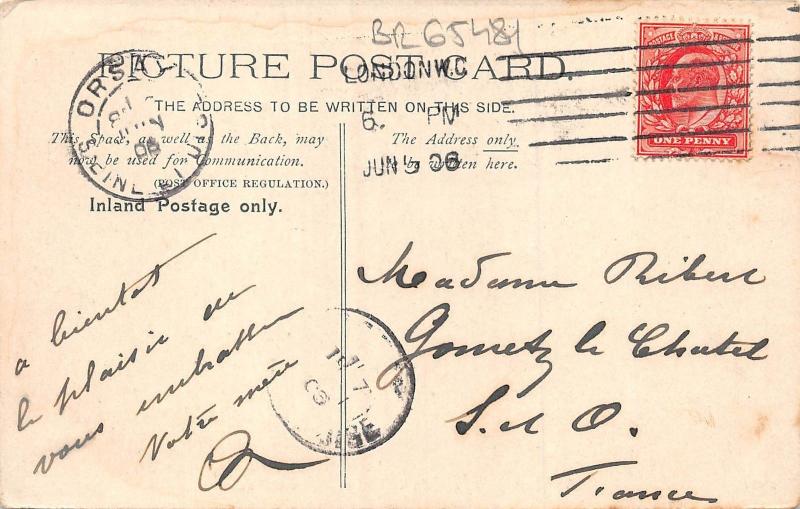 BR 65481
PICTURE POST CARD.
THE ADDRESS TO BE WRITTEN ON THIS SIDE.
This Space, as well as the Back, may
now be used for Communication.
(POST OFFICE REGULATION.)
Inland Postage only.
The Address only
be written here.
LONDON W.C.
6. PM
JUN 5 06
ORSAY
SEINE
ONE PENNY
a bientot
le plaisir de
vous embrasser
Votre mère
Madame Ribert
Gometz le Chatel
S. et O.
France